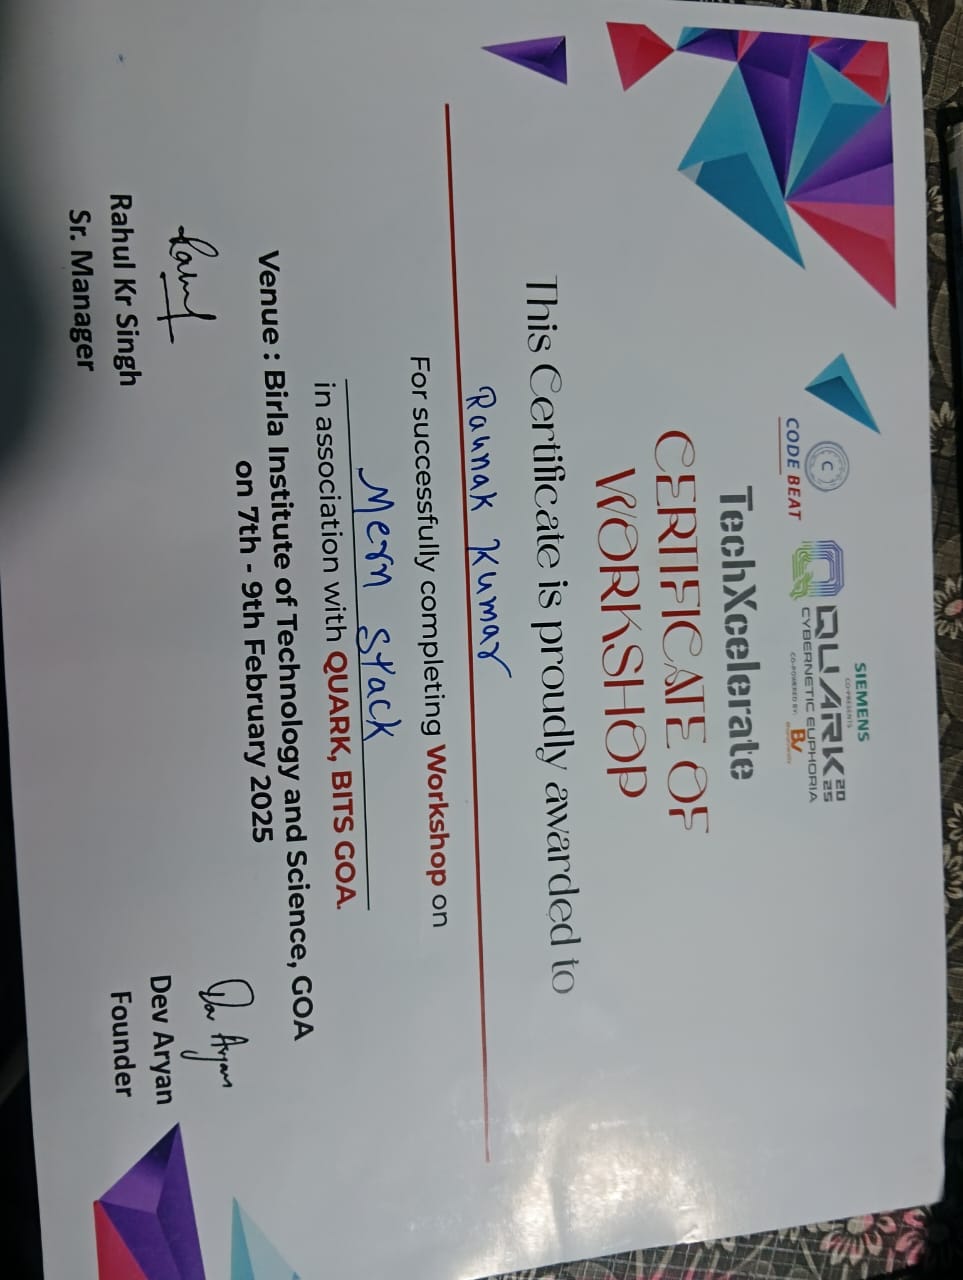 SIEMENS
CO-PRESENTS
C
CODE BEAT
QUARK 2025
CYBERNETIC EUPHORIA
CO-POWERED BY:
TechXcelerate
CERTIFICATE OF
WORKSHOP
This Certificate is proudly awarded to
Raunak Kumar
For successfully completing Workshop on
Mern Stack
in association with QUARK, BITS GOA.
Venue : Birla Institute of Technology and Science, GOA
on 7th - 9th February 2025
Rahul
Rahul Kr Singh
Sr. Manager
Dev Aryan
Dev Aryan
Founder